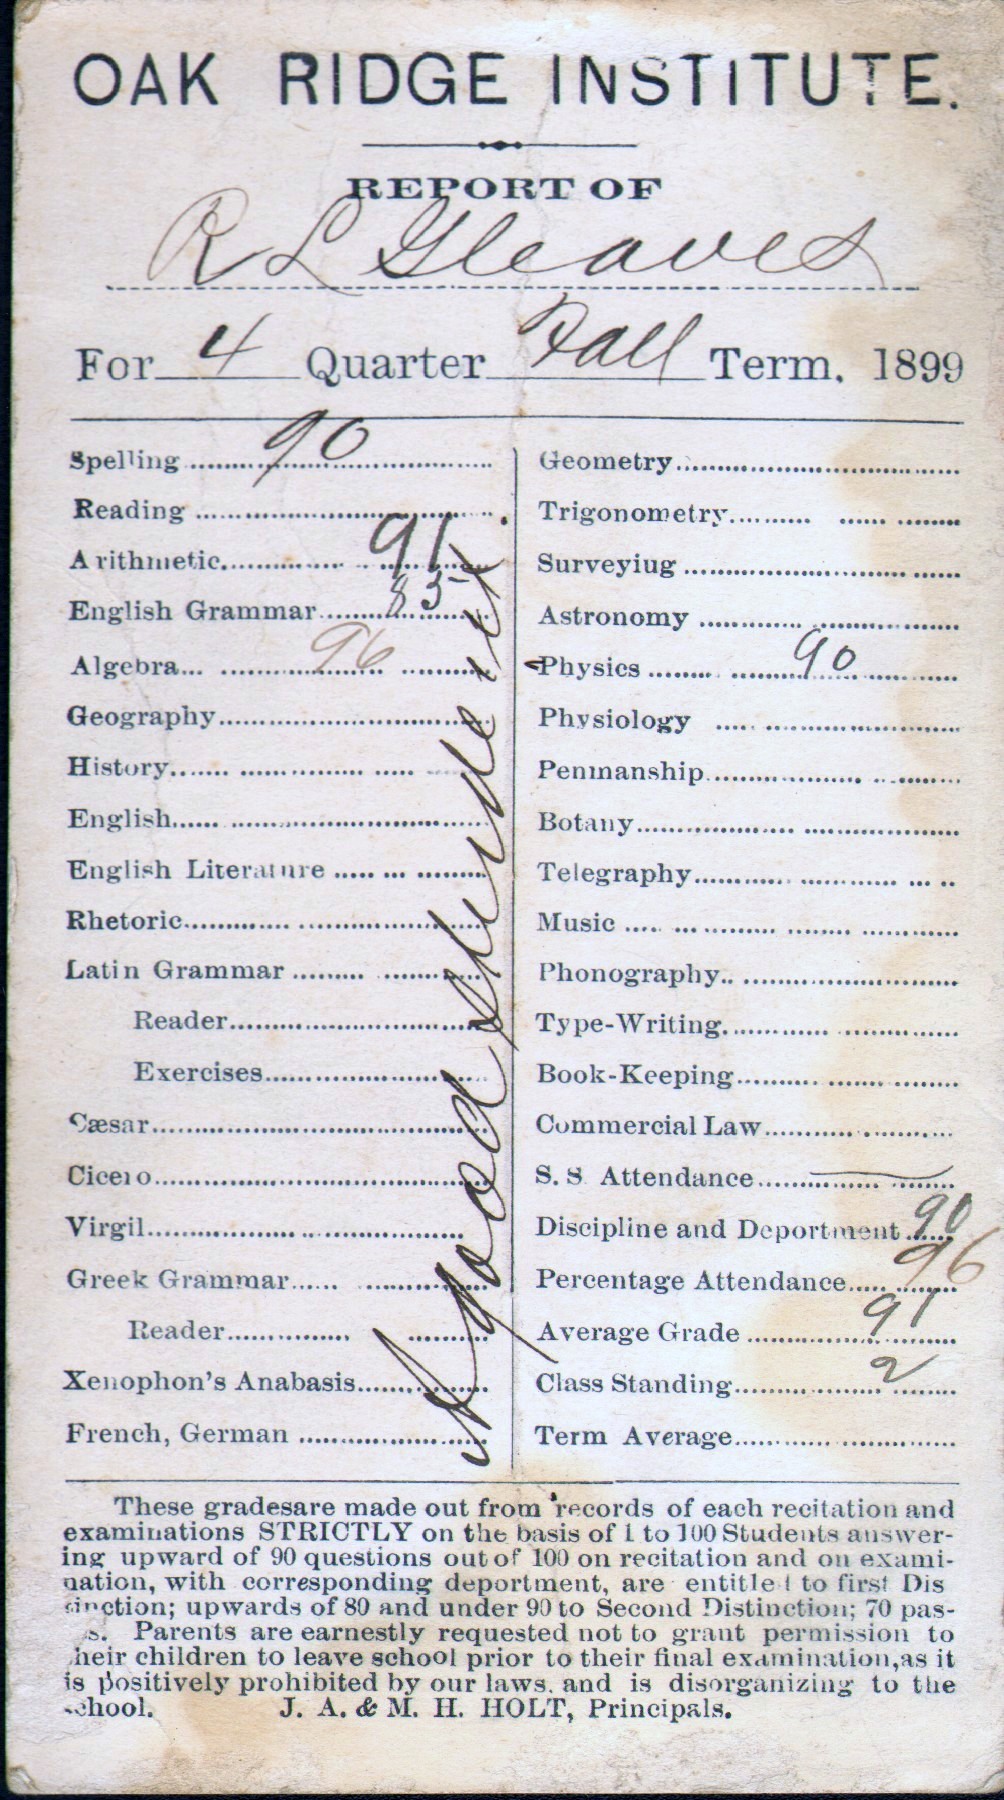 OAK RIDGE INSTITUTE.
REPORT OF
R L Gleaves
For 4 Quarter Fall Term, 1899
Spelling 90
Reading
Arithmetic 91
English Grammar 85
Algebra 96
Geography
History
English
English Literature
Rhetoric
Latin Grammar
Reader
Exercises
Cæsar
Cicero
Virgil
Greek Grammar
Reader
Xenophon's Anabasis
French, German
A good student.
Geometry
Trigonometry
Surveyiug
Astronomy
Physics 90
Physiology
Penmanship
Botany
Telegraphy
Music
Phonography
Type-Writing
Book-Keeping
Commercial Law
S. S. Attendance
Discipline and Deportment 90
Percentage Attendance 96
Average Grade 91
Class Standing 2
Term Average
These gradesare made out from records of each recitation and
examinations STRICTLY on the basis of 1 to 100 Students answer-
ing upward of 90 questions out of 100 on recitation and on exami-
nation, with corresponding deportment, are entitled to first Dis
tinction; upwards of 80 and under 90 to Second Distinction; 70 pas-
s. Parents are earnestly requested not to grant permission to
heir children to leave school prior to their final examination, as it
is positively prohibited by our laws. and is disorganizing to the
school. J. A. & M. H. HOLT, Principals.